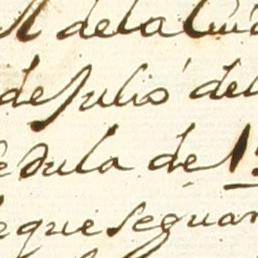 de la
de Julio del
edula de 1
que seguar